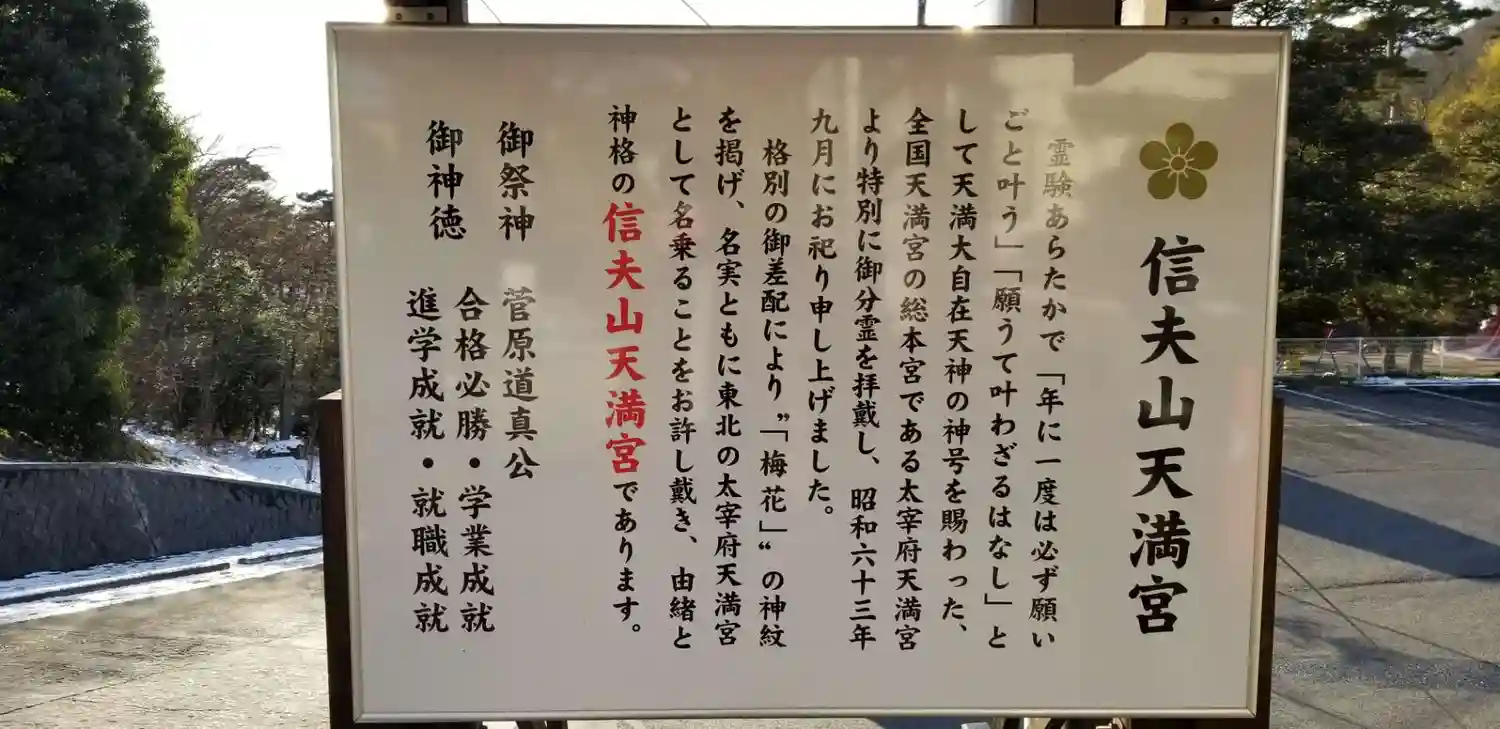 信夫山天満宮
霊験あらたかで「年に一度は必ず願い
ごと叶う」「願うて叶わざるはなし」と
して天満大自在天神の神号を賜わった、
全国天満宮の総本宮である太宰府天満宮
より特別に御分霊を拝戴し、昭和六十三年
九月にお祀り申し上げました。
格別の御差配により〝「梅花」〟の神紋
を掲げ、名実ともに東北の太宰府天満宮
として名乗ることをお許し戴き、由緒と
神格の信夫山天満宮であります。
御祭神 菅原道真公
御神徳 合格必勝・学業成就
進学成就・就職成就